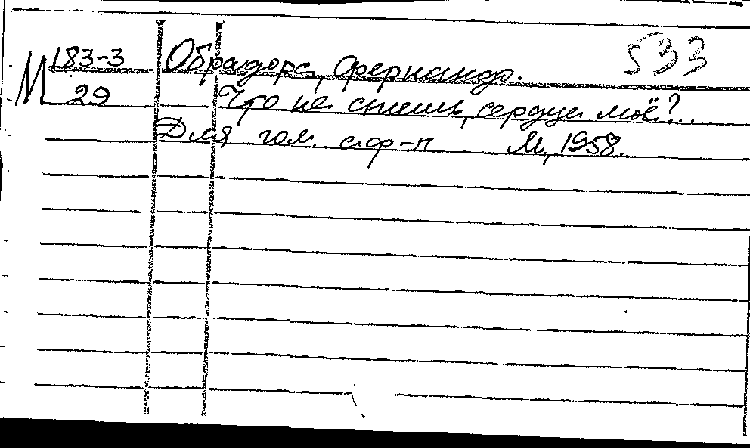 М 183-3 Обрадорс, Фернандо. 533
29 Что не спишь, сердце моё?
Для гол. с ф-п М., 1958.